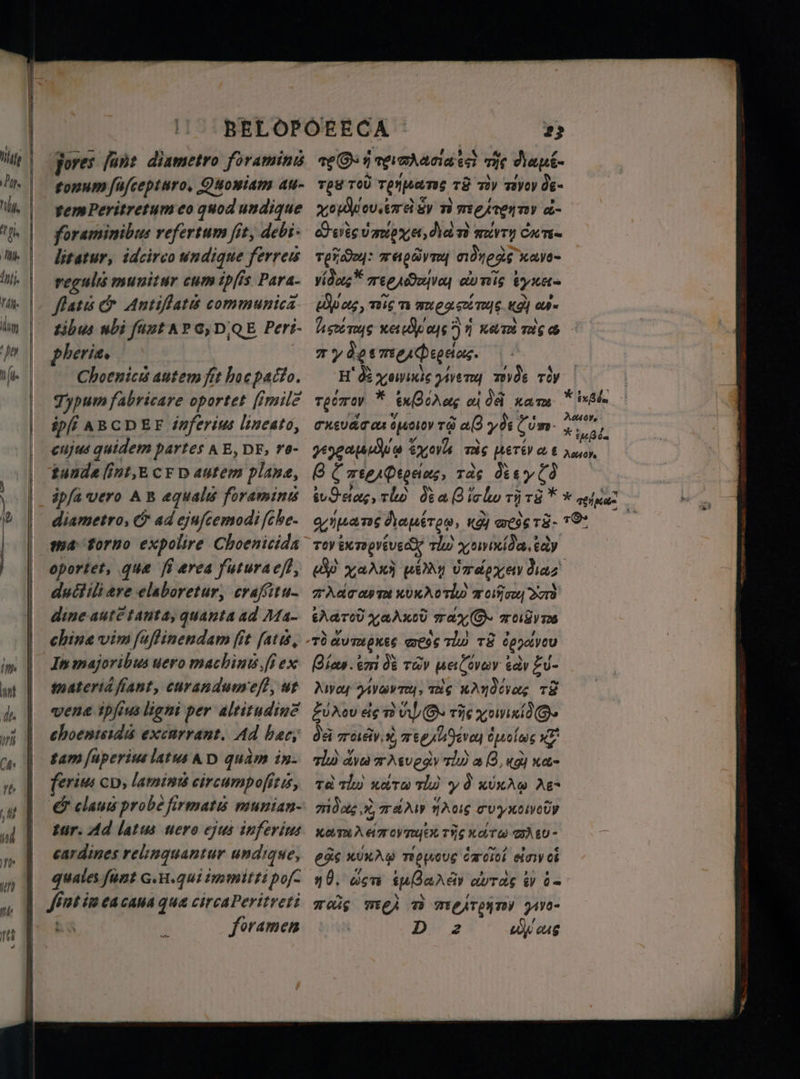 BELOPOEECA 23
fores sunt diametro foraminis
tonum suscepturo, Quoniam au-
tem Peritretum eo quod undique
foraminibus refertum sit, debi-
litatur, idcirco undique ferreis
regulis munitur cum ipsis Para-
statis & Antistatis communica
tibus ubi sunt ΑΡG, D, QE Peri-
pheria.
Choenicis autem fit hoc pacto.
Typum fabricare oportet simile
ipsi ABCDEF inferius lineato,
cujus quidem partes AE, DF, ro-
tunda sint, E CF D autem plana,
ipsa vero AB aequalis foraminis
diametro, & ad ejuscemodi sche-
ma torno expolire Choenicida
oportet, qua si aerea futura est,
ductili aere elaboretur, crassitu-
dine autē tanta, quanta ad Ma-
china vim sustinendam sit satis,
In majoribus vero machinis, si ex
materia fiant, curandum est, ut
vena ipsius ligni per altitudinē
choenicidis excurrant. Ad haec
tam superius latus AD quàm in-
ferius CD, laminis circumpositis,
& clavis probè firmatis munian-
tur. Ad latus uero ejus inferius
cardines relinquantur undique,
quales sunt G.H. qui immitti pos-
sint in ea cava qua circa Peritreti
foramen
τρ⊙ ἡ τριπλασία ἐστὶ τῆς διαμέ-
τρȣ τοῦ τρήματος τȣ̃ τὸν τόνον δε-
χομένου. ἐπεὶ ȣ̓ν τὸ περίτρητον ἀ-
σθενὲς ὑπάρχει, διὰ τὸ πάντη ἐκτε-
τρῆσθαι: πειρῶνται σιδηρᾶς κανο-
νίδας* περιθεῖναι αὐτοῖς ἐγκει-
μένας, τοῖς τε παραστάταις καὶ ἀν-
τιστάταις κειμέναις ᾗ ἡ κατὰ τὰς α
π γ δ ρ ε περιφερείας.
Ἡ δὲ χοινικὶς γίνεται τόνδε τὸν
τρόπον * ἐκβόλας αἱ δεῖ κατα
σκευάσαι ὅμοιον τῷ αβ γδε ζ ὑπο-
γεγραμμένῳ ἔχοντα τὰς μετὲν α ε
β ζ περιφερείας, τὰς δὲ ε γ ζ δ
εὐθείας, τὴν δὲ α β ἴσην τῇ τȣ̃ *
σχήματος διαμέτρῳ, καὶ πρὸς τȣ̃-
τον ἐκτορνεύεσθαι τὴν χοινικίδα, ἐὰν
μὲν χαλκῆ μέλλῃ ὑπάρχειν διας
πλάσαντα κυκλοτὴν ποιῆσαι ἀπὸ
ἐλατοῦ χαλκοῦ πάχ⊙ ποιȣ̃ντα
τὸ ἀυταρκες πρὸς τὴν τȣ̃ ὀργάνου
βίαν. ἐπὶ δὲ τῶν μειζόνων ἐὰν ξύ-
λιναι γίνωνται, τὰς κληδόνας τȣ̃
ξύλου εἰς τὸ ὕψ⊙ τῆς χοινικίδ⊙
δεῖ ποιεῖν, καὶ περιληφέναι ὁμοίως κατὰ
τὴν ἄνω πλευρὰν τὴν α β, καὶ κα-
τὰ τὴν κάτω τὴν γ δ κύκλῳ λε-
πίδας καὶ πάλιν ἥλοις συγκοινοῦν
καταλείπονται ἐκ τῆς κάτω πλευ-
ρᾶς κύκλῳ τόρμους ὁποῖοί εἰσιν οἱ
η θ, ὥστε ἐμβαλεῖν αὐτὰς ἐν ὀ-
παῖς περὶ τὸ περίτρητον γινο-
D 2 μέναις
* ἐκβό.
λαιον,
* ἐμβό.
λαιον,
* τρήμα-
τ⊙